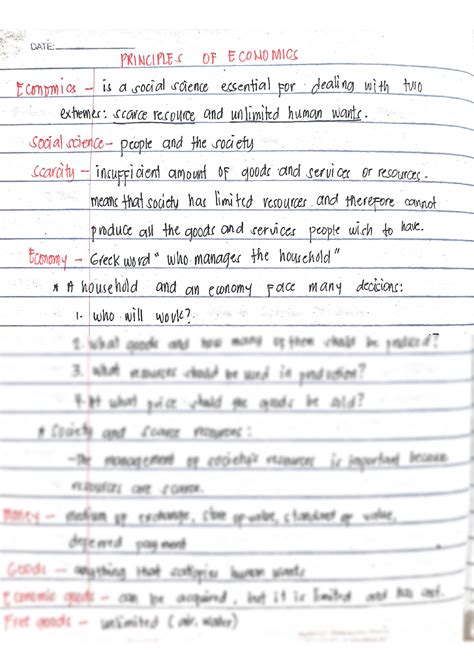 DATE:
PRINCIPLES OF ECONOMICS
Economics - is a social science essential for dealing with two
extremes: scarce resource and unlimited human wants.
Social science - people and the society
Scarcity - insufficient amount of goods and services or resources.
means that society has limited resources and therefore cannot
produce all the goods and services people wish to have.
Economy - Greek word "who manages the household"
* A household and an economy face many decisions:
1. who will work?
2. what goods and how many of them should be produced?
3. what resources should be used in production?
4. At what price should the goods be sold?
* Society and scarce resources:
-The management of society's resources is important because
resources are scarce.
Money - medium of exchange, store of value, standard of value,
deferred payment
Goods - anything that satisfies human wants
Economic goods - can be acquired, but it is limited and has cost.
Free goods - unlimited (air, water)